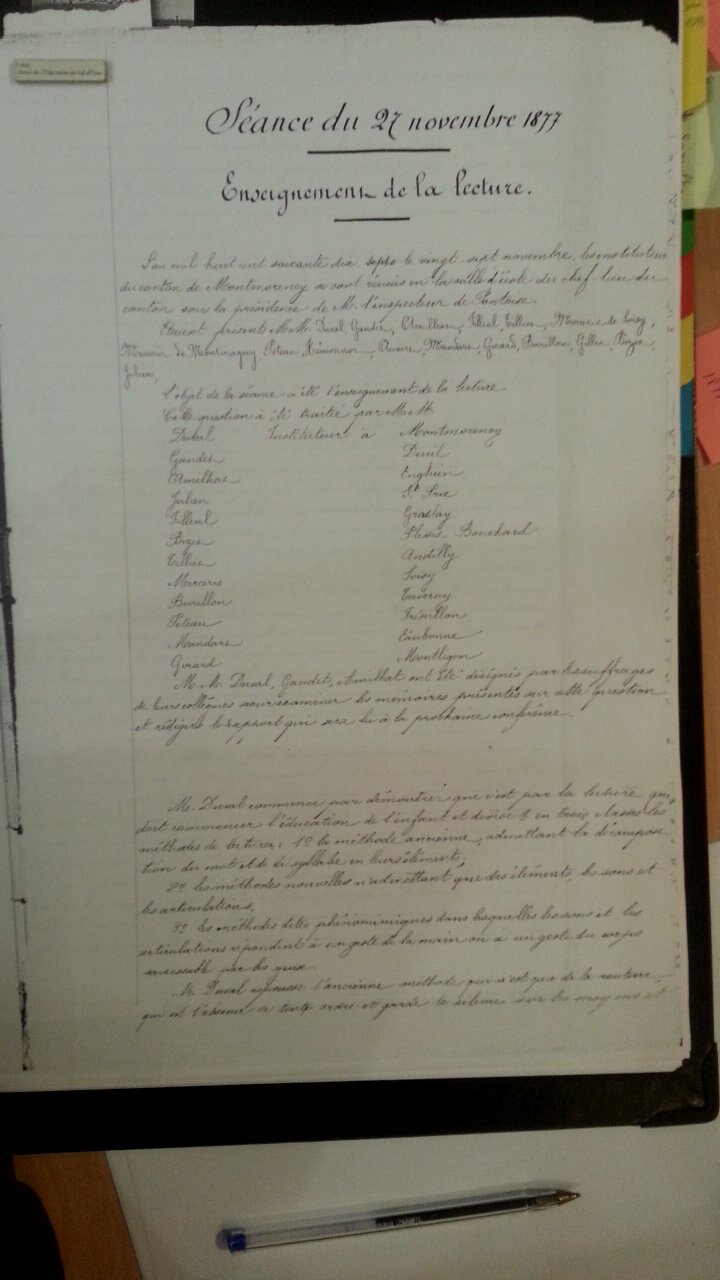 Séance du 27 novembre 1877
Enseignement de la lecture.
L'an mil huit cent soixante dix sept le vingt sept novembre, les instituteurs
du canton de Montmorency se sont réunis en la salle d'école du chef lieu du
canton sous la présidence de M. l'inspecteur de Pontoise.
Etaient présents M.M. Duval, Gaudet, Amilhat, Filleul, Tillier, Mercerie de Soisy,
de Montmagny, Poteau, Mandart, Girard, Burillon,
Julien,
L'objet de la séance a été l'enseignement de la lecture
Cette question a été traitée par M.M.
Duval Instituteur à Montmorency
Gaudet Deuil
Amilhat Enghien
Julien St Prix
Filleul Groslay
Plessis Bouchard
Andilly
Soisy
Burillon Taverny
Poteau Frépillon
Mandart Eaubonne
Girard Montlignon
M.M. Duval, Gaudet, Amilhat ont été désignés par les suffrages
de leurs collègues pour examiner les mémoires présentés sur cette question
et rédiger le rapport qui sera lu à la prochaine conférence.
M. Duval commence par démontrer que c'est par la lecture que
doit commencer l'éducation de l'enfant et divise en trois classes les
méthodes de lecture: 1º la méthode ancienne, admettant la décomposi
tion du mot et de la syllabe en leurs éléments;
2º les méthodes nouvelles n'admettant que des éléments, les sons et
les articulations.
3º les méthodes dites phénomimiques dans lesquelles les sons et les
articulations répondent à un geste de la main ou à un geste du corps
saisissable par les yeux.
M. Duval repousse l'ancienne méthode qui n'est que de la routine,
qui est l'absence de tout ordre et garde le silence sur les moyens et